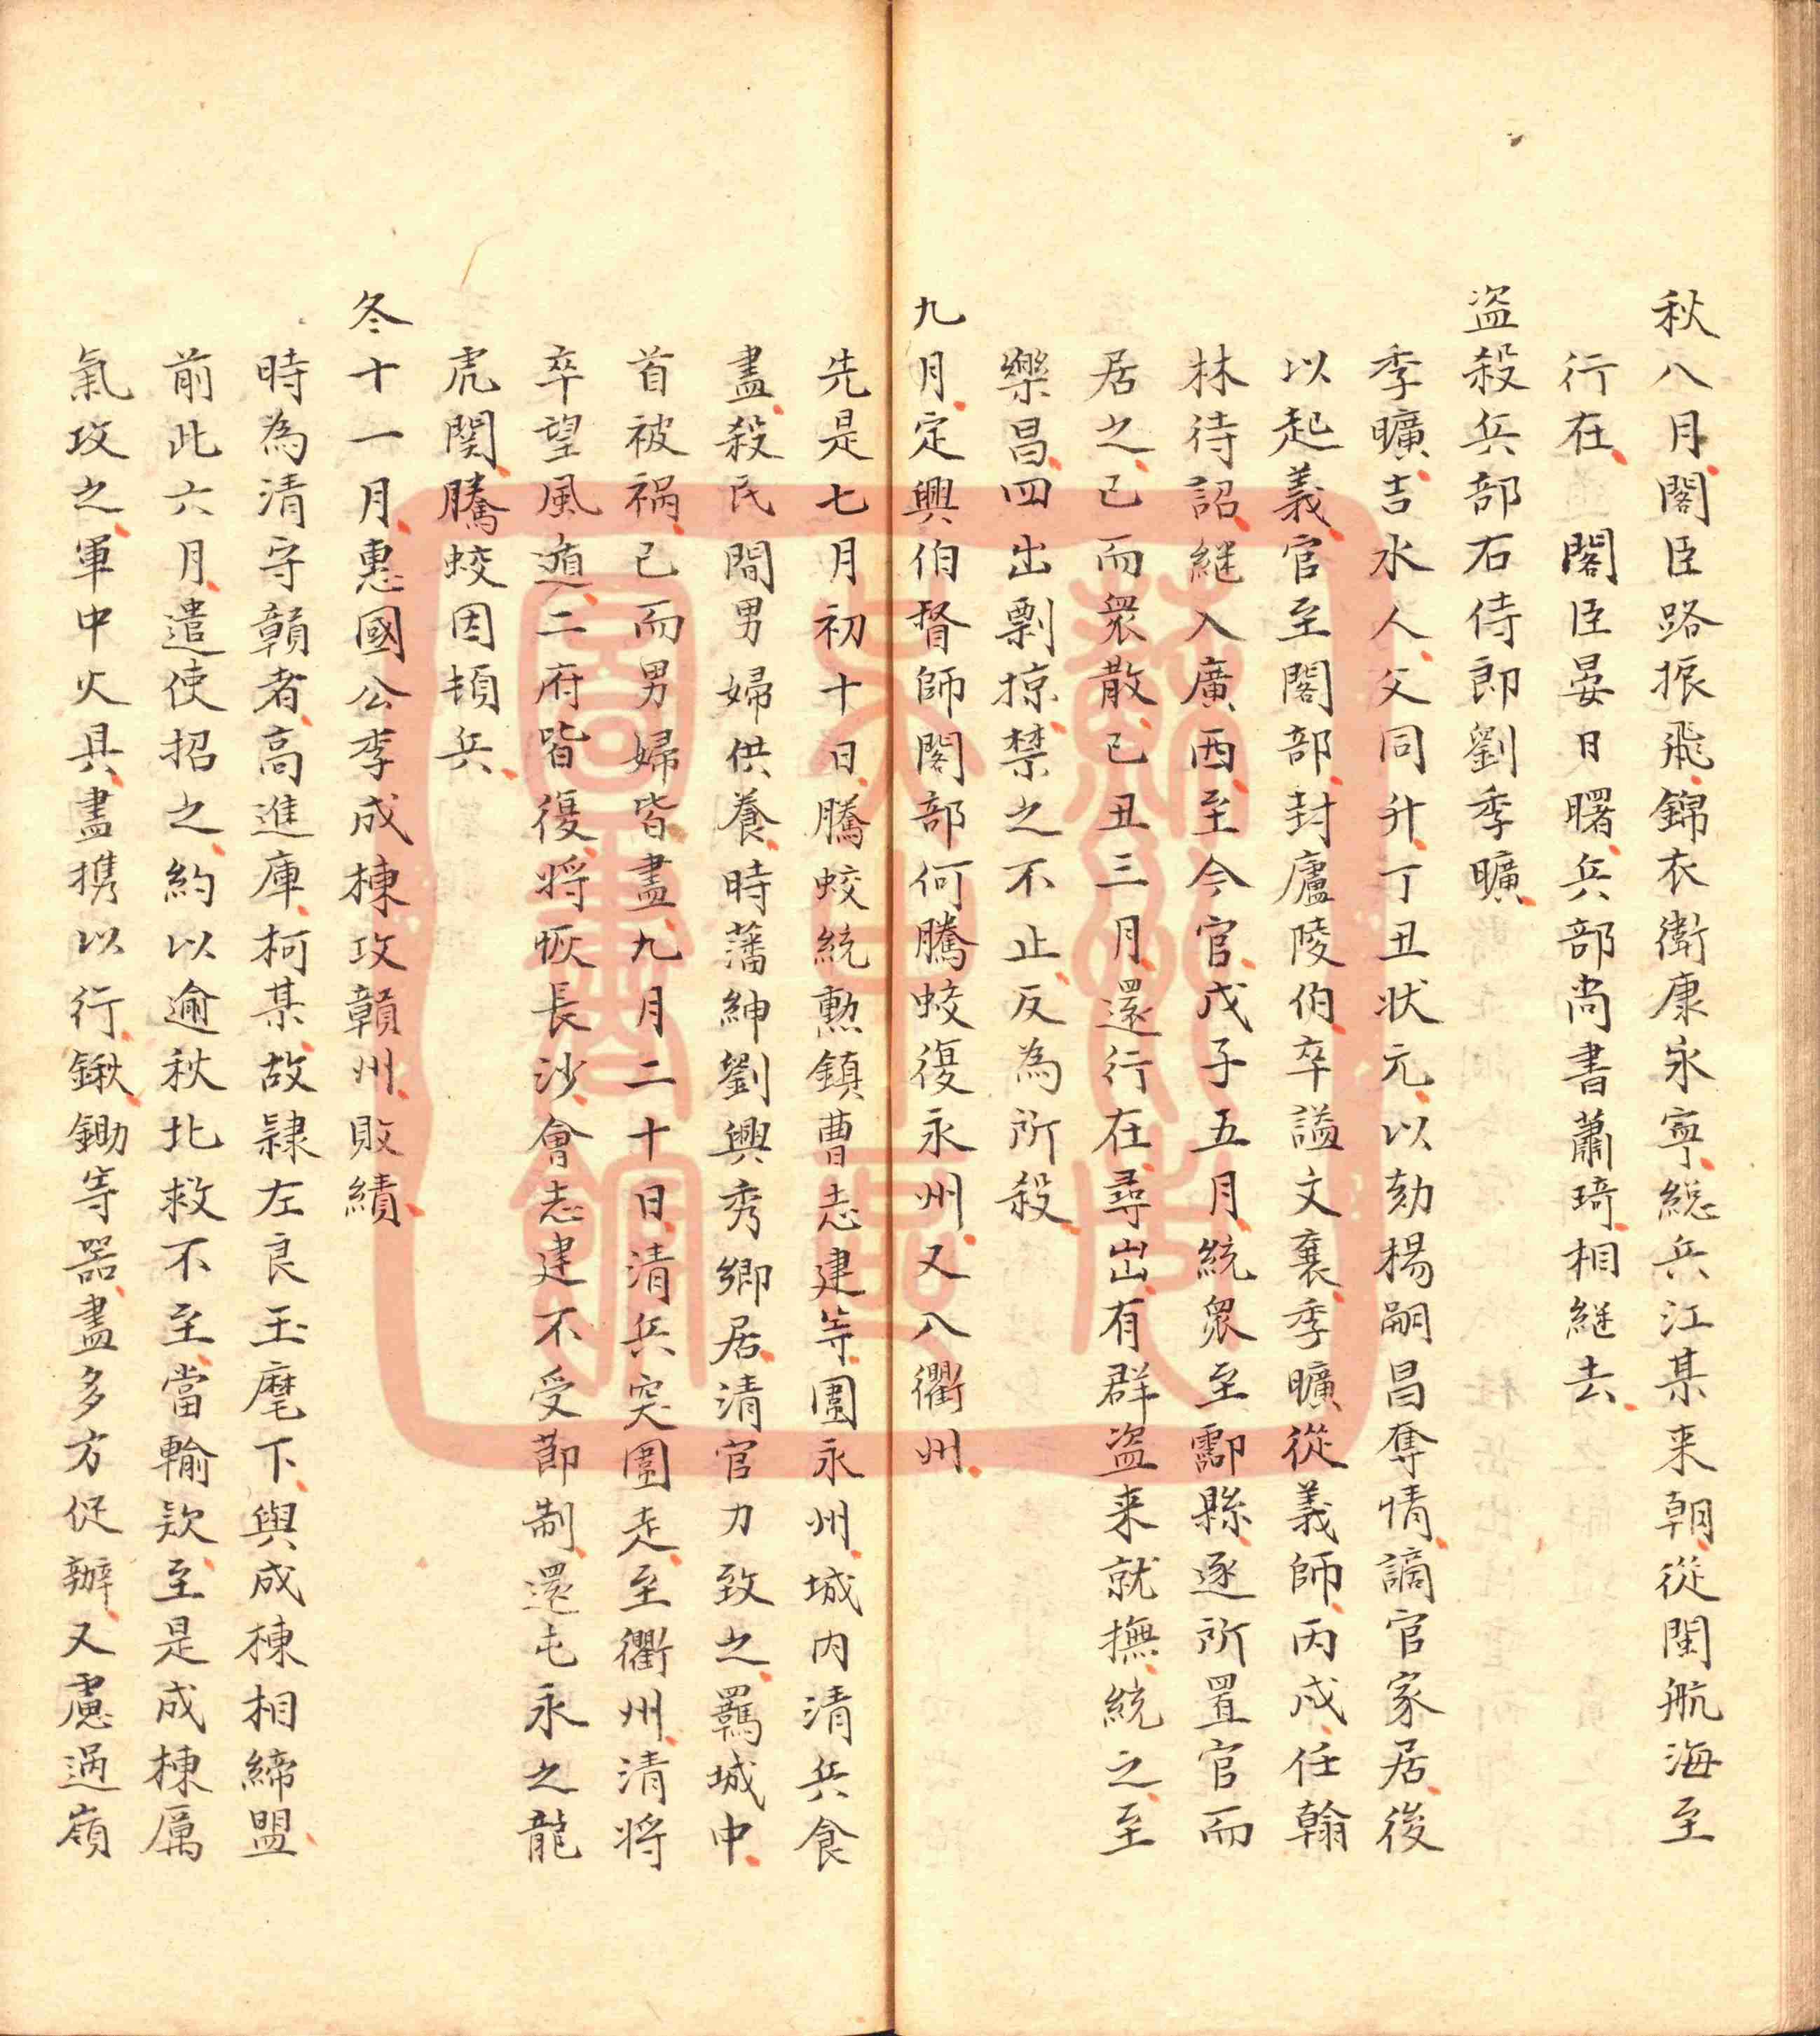 秋八月閣臣路振飛錦衣衛康永寧總兵江某来朝從閩航海至
行在　閣臣晏日曙兵部尚書蕭琦相継去
盜殺兵部右侍郎劉季曠
季曠吉水人父同升丁丑状元以劾楊嗣昌奪情謫官家居後
以起義官至閣部封廬陵伯卒謚文襄季曠從義師丙戍任翰
林待詔継入廣西至今官戊子五月統衆至酃縣逐所置官而
居之已而衆散已丑三月還行在尋出有群盜来就撫統之至
樂昌四出剽掠禁之不止反為所殺
九月定興伯督師閣部何騰蛟復永州又入衢州
先是七月初十日騰蛟統勲鎮曹志建等圍永州城内清兵食
盡殺民間男婦供養時藩紳劉興秀鄉居清官力致之羈城中
首被禍已而男婦皆盡九月二十日清兵突圍走至衢州清将
卒望風遁二府皆復将恢長沙會志建不受節制還屯永之龍
虎関騰蛟因頓兵
冬十一月惠國公李成棟攻贛州敗績
時為清守贛者高進庫柯某故隷左良玉麾下與成棟相締盟
前此六月遣使招之約以逾秋北救不至當輸欵至是成棟厲
氣攻之軍中火具盡携以行鍬鋤等器盡多方促辦又慮過嶺